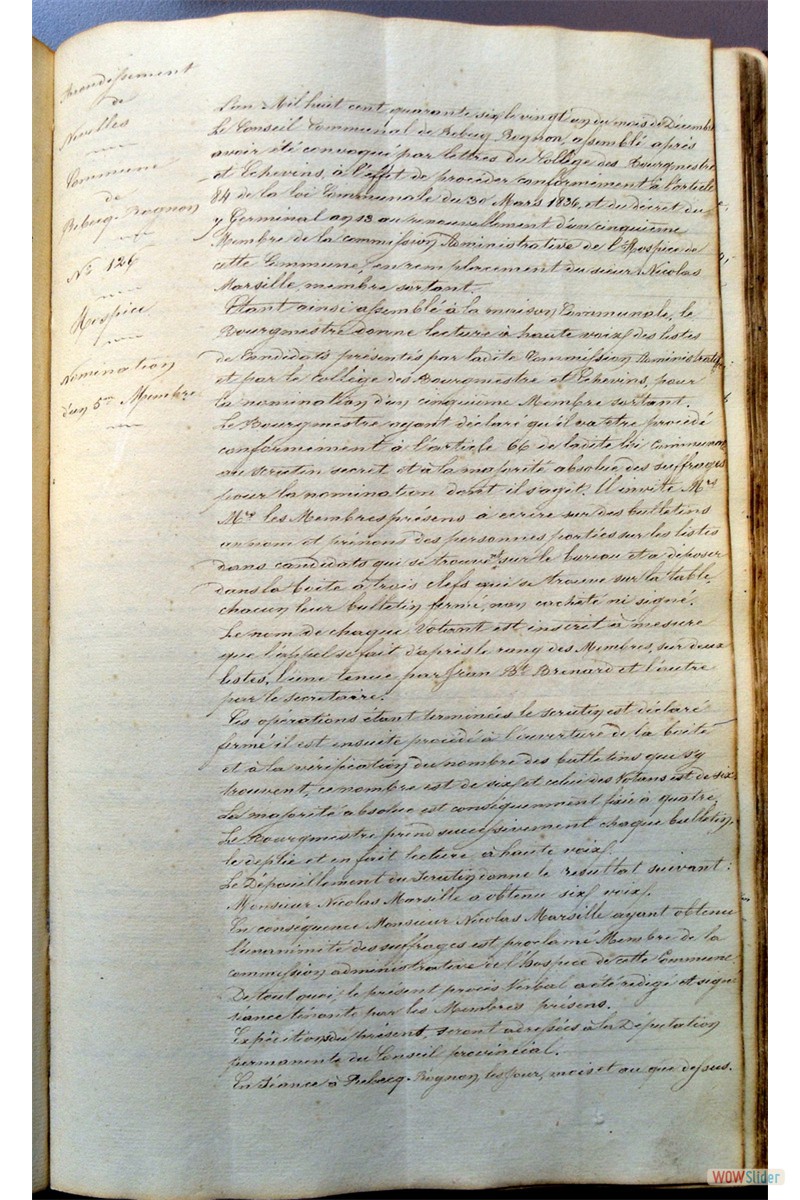 Arrondissement
de
Nivelles
Commune
de
Rebecq-Rognon
N° 126
Hospice
Nomination
d'un 5me Membre
L'an Mil huit cent quarante six le vingt un du mois de Décembre
Le Conseil Communal de Rebecq Rognon, assemblé après
avoir été convoqué par lettres du Collège des Bourgmestre
et Echevins, à l'effet de procéder conformément à l'article
84 de la loi Communale du 30 Mars 1836, et du décret du
7 Germinal an 13 au renouvellement d'un cinquième
Membre de la commission Administrative de l'Hospice de
cette Commune, en remplacement du sieur Nicolas
Marsille, membre sortant.
Etant ainsi assemblé à la maison Communale, le
Bourgmestre donne lecture à haute voix des listes
de Candidats présentés par ladite Commission Administrative
et par le Collège des Bourgmestre et Echevins, pour
la nomination d'un cinquième Membre sortant.
Le Bourgmestre ayant déclaré qu'il va etre procédé
conformément à l'article 66 de ladite loi Communale
au scrutin secret et à la majorité absolue des suffrages
pour la nomination dont il s'agit. Il invite Mrs
Mrs les Membres présens à écrire sur des bulletins
un nom et prénoms des personnes portées sur les listes
dans candidats qui se trouvent sur le bureau et a déposer
dans la boite à trois clefs qui se trouve sur la table,
chacun leur bulletin fermé, non cacheté ni signé.
Le nom de chaque Votant est inscrit à mesure
que l'appel se fait d'après le rang des Membres, sur deux
listes, l'une tenue par Jean Bte Brenard et l'autre
par le secretaire.
Les opérations étant terminées le scrutin est déclaré
fermé il est ensuite procédé à l'ouverture de la boite
et à la vérification du nombre des bulletins qui s'y
trouvent, ce nombre est de six et celui des Votans est de six
La majorité absolue est conséquemment fixée à quatre.
Le Bourgmestre prend successivement chaque bulletin,
le deplie et en fait lecture à haute voix.
Le Dépouillement du Scrutin donne le resultat suivant:
Monsieur Nicolas Marsille a obtenu six voix.
En conséquence Monsieur Nicolas Marsille ayant obtenu
l'unanimité des suffrages est proclamé Membre de la
commission administrative de l'Hospice de cette Commune
De tout quoi, le présent procès Verbal a été rédigé et signé
séance tenante par les Membres présens.
Expéditions du présent, seront adressées à la Députation
permanente du Conseil provincial.
En Séance à Rebecq-Rognon, les jour, mois et an que dessus.
WOWSlider